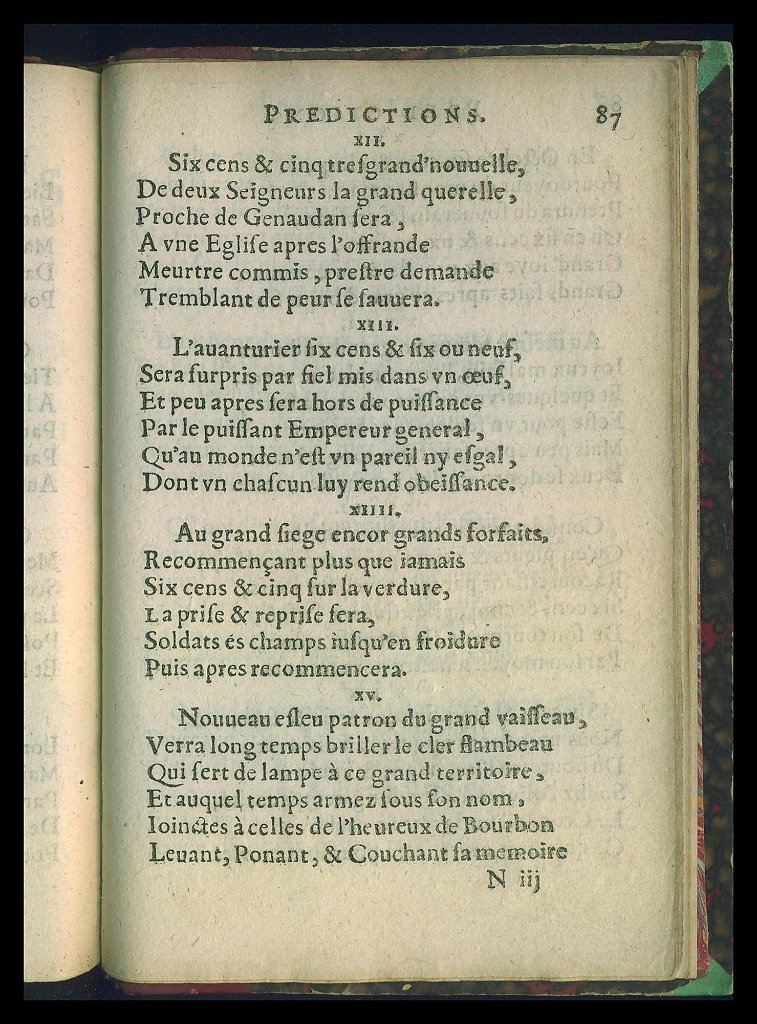 PREDICTIONS. 87
XII.
Six cens & cinq treſgrand'nouuelle,
De deux Seigneurs la grand querelle,
Proche de Genaudan ſera,
A vne Egliſe apres l'offrande
Meurtre commis, preſtre demande
Tremblant de peur ſe ſauuera.
XIII.
L'auanturier ſix cens & ſix ou neuf,
Sera ſurpris par fiel mis dans vn œuf,
Et peu apres ſera hors de puiſſance
Par le puiſſant Empereur general,
Qu'au monde n'eſt vn pareil ny eſgal,
Dont vn chaſcun luy rend obeiſſance.
XIIII.
Au grand ſiege encor grands forfaits,
Recommençant plus que iamais
Six cens & cinq ſur la verdure,
La priſe & repriſe ſera,
Soldats és champs iuſqu'en froidure
Puis apres recommencera.
XV.
Nouueau eſleu patron du grand vaiſſeau,
Verra long temps briller le cler flambeau
Qui ſert de lampe à ce grand territoire,
Et auquel temps armez ſous ſon nom,
Ioinctes à celles de l'heureux de Bourbon
Leuant, Ponant, & Couchant ſa memoire
N iij